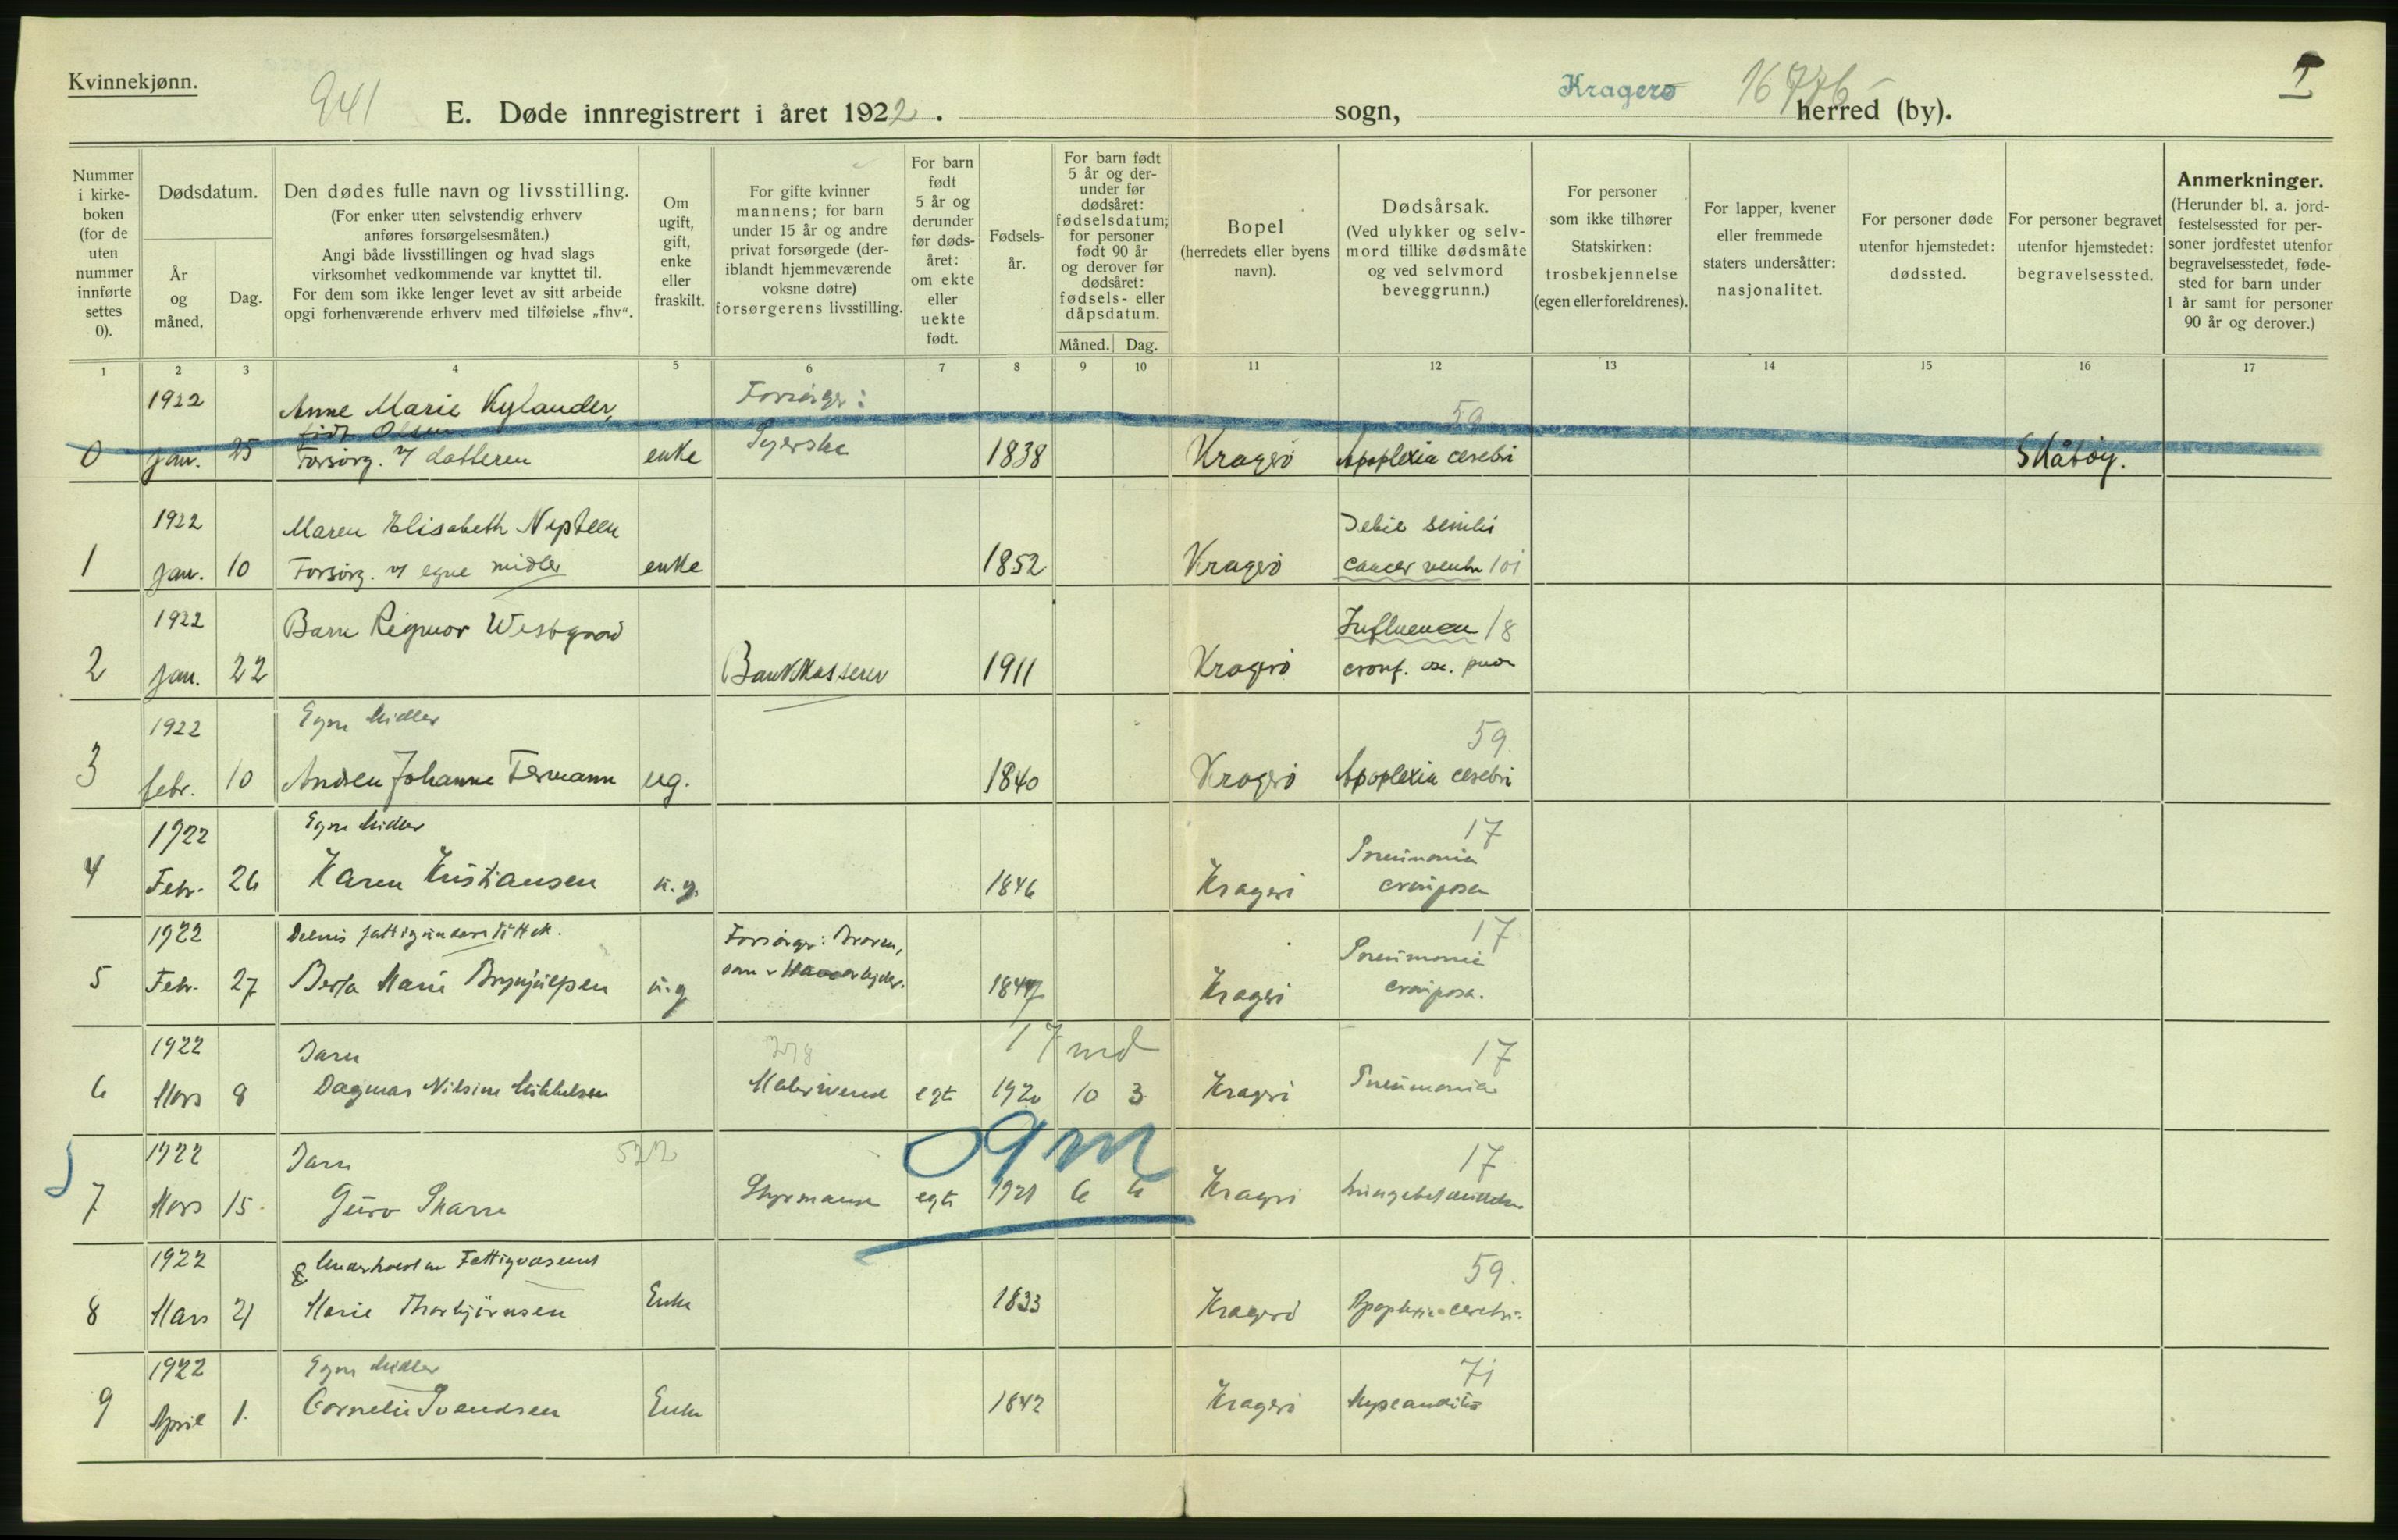 Kvinnekjønn.
941
E. Døde innregistrert i året 1922. sogn, Kragerø herred (by).
16776
1
Nummer i kirke-boken (for de uten nummer innførte settes 0).
Dødsdatum.
År og måned.
Dag.
Den dødes fulle navn og livsstilling.
(For enker uten selvstendig erhverv
anføres forsørgelsesmåten.)
Angi både livsstillingen og hvad slags
virksomhet vedkommende var knyttet til.
For dem som ikke lenger levet av sitt arbeide
opgi forhenværende erhverv med tilføielse „fhv“.
Om ugift, gift, enke eller fraskilt.
For gifte kvinner
mannens; for barn
under 15 år og andre
privat forsørgede (der-
iblandt hjemmeværende
voksne døtre)
forsørgerens livsstilling.
For barn født 5 år og derunder før døds-året: om ekte eller uekte født.
Fødsels-år.
For barn født
5 år og der-
under før
dødsåret:
fødselsdatum;
for personer
født 90 år
og derover før
dødsåret:
fødsels- eller
dåpsdatum.
Måned. Dag.
Bopel
(herredets eller byens
navn).
Dødsårsak.
(Ved ulykker og selv-
mord tillike dødsmåte
og ved selvmord
beveggrunn.)
For personer
som ikke tilhører
Statskirken:
trosbekjennelse
(egen eller foreldrenes).
For lapper, kvener
eller fremmede
staters undersåtter:
nasjonalitet.
For personer døde
utenfor hjemstedet:
dødssted.
For personer begravet
utenfor hjemstedet:
begravelsessted.
Anmerkninger.
(Herunder bl. a. jord-
festelsessted for per-
soner jordfestet utenfor
begravelsesstedet, føde-
sted for barn under
1 år samt for personer
90 år og derover.)
1 2 3 4 5 6 7 8 9 10 11 12 13 14 15 16 17
1922 Anne Marie Kylander, Forsørger: 59
født Olsen
0 jan. 25 Forsørg. v datteren enke Syerske 1838 Kragerø Apoplexia cerebri Skåtøy.
1922 Maren Elisabeth Debil senilis
1 jan. 10 Forsørg. v egne midler enke 1852 Kragerø cancer ventr
1922 Barn Westgaard Influenca 18
2 jan. 22 Bankkasserer 1911 Kragerø
1922 Egne Midler 59
3 febr. 10 Johanne Termann ug. 1840 Kragerø Apoplexia cerebri
1922 Egne Midler 17
4 Febr. 26 Karen Kristiansen u.g. 1846 Kragerø Pneumonia crouposa
1922 Delvis fattigunderstøttet. Forsørger: Broren, 17
5 Febr. 27 Marie u.g 1847 Kragerø Pneumonia crouposa.
17 md
1922 Barn 278 17
6 Mars 8 Dagmar Nilsine Mikkelsen egt 1920 10 3 Kragerø Pneumonia
9 m
1922 Barn 522 17
7 Mars 15. Guro Skarre Styrmann egt 1921 6 Kragerø
1922 Fattigvæsenet 59.
8 Mars 21 Marie Thorbjørnsen Enke 1833 Kragerø Apoplexia cerebri.
1922 Egne Midler 71
9 April 1. Cornelie Svendsen Enke 1842 Kragerø